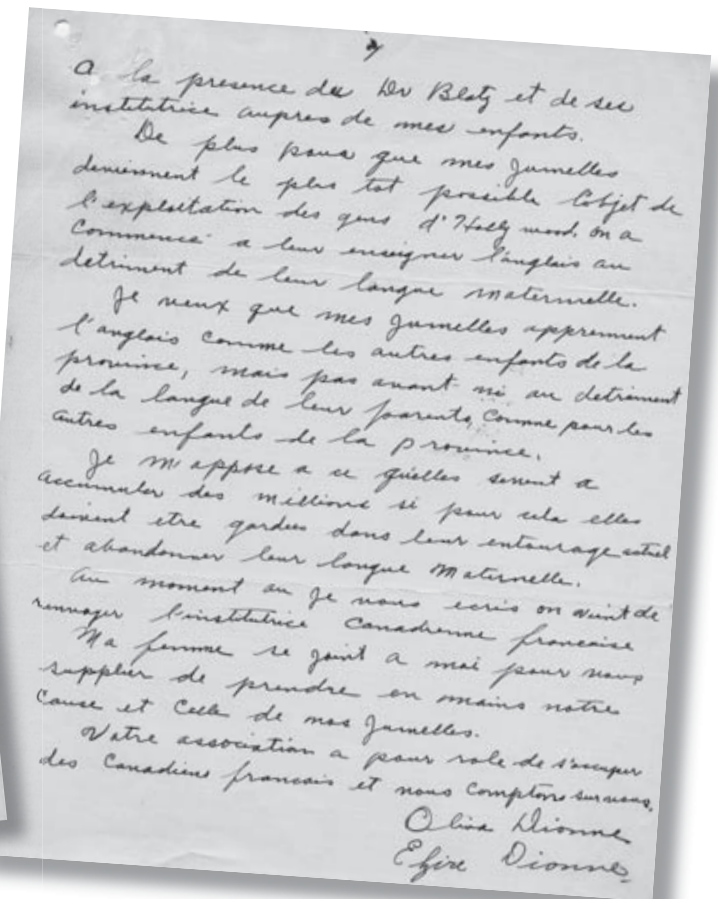 2
a la presence du Dr Blatz et de ses
institutrice aupres de mes enfants.
De plus pour que mes jumelles
deviennent le plus tot possible l'objet de
l'exploitation des gens d'Hollywood. on a
commencé a leur enseigner l'anglais au
detriment de leur langue maternelle.
Je veux que mes jumelles apprennent
l'anglais comme les autres enfants de la
province, mais pas avant ni au detriment
de la langue de leur parents, comme pour les
autres enfants de la province.
Je m'oppose a ce qu'elles servent a
accumuler des millions si pour cela elles
doivent etre gardees dans leur entourage actuel
et abandonner leur langue maternelle.
Au moment ou je vous ecris on vient de
renvoyer l'institutrice Canadienne francaise
Ma femme se joint a moi pour vous
supplier de prendre en mains notre
cause et celle de nos jumelles.
Votre association a pour role de s'occuper
des Canadiens francais et nous comptons sur vous.
Oliva Dionne
Elzire Dionne